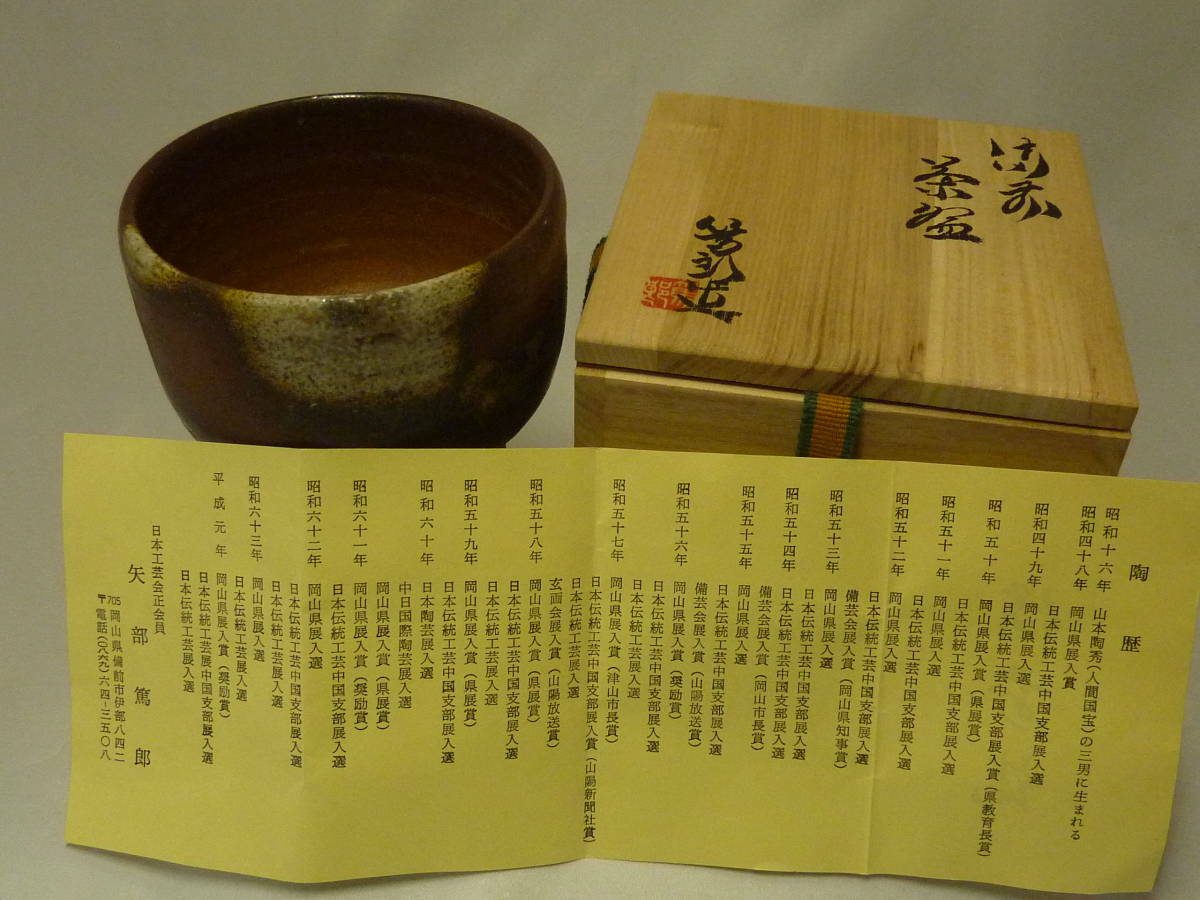 備前
茶盌
篤郎造
陶歴
昭和十六年 山本陶秀(人間国宝)の三男に生まれる
昭和四十八年 岡山県展入賞
日本伝統工芸中国支部展入選
昭和四十九年 岡山県展入選
日本伝統工芸中国支部展入賞(県教育長賞)
昭和五十年 岡山県展入賞(県展賞)
日本伝統工芸中国支部展入選
昭和五十一年 岡山県展入選
日本伝統工芸中国支部展入選
昭和五十二年 岡山県展入選
日本伝統工芸中国支部展入選
備芸会展入賞(岡山県知事賞)
昭和五十三年 岡山県展入選
日本伝統工芸中国支部展入選
昭和五十四年 日本伝統工芸中国支部展入選
備芸会展入賞(岡山市長賞)
昭和五十五年 岡山県展入選
日本伝統工芸中国支部展入選
備芸会展入賞(山陽放送賞)
昭和五十六年 岡山県展入賞(奨励賞)
日本伝統工芸中国支部展入選
日本伝統工芸展入選
昭和五十七年 岡山県展入賞(津山市長賞)
日本伝統工芸中国支部展入賞(山陽新聞社賞)
日本伝統工芸展入選
玄画会展入賞(山陽放送賞)
昭和五十八年 岡山県展入賞(県展賞)
日本伝統工芸中国支部展入選
日本伝統工芸展入選
昭和五十九年 岡山県展入賞(県展賞)
日本伝統工芸中国支部展入選
昭和六十年 日本陶芸展入選
中日国際陶芸展入選
岡山県展入賞(県展賞)
昭和六十一年 岡山県展入賞(奨励賞)
日本伝統工芸中国支部展入選
昭和六十二年 岡山県展入選
日本伝統工芸中国支部展入選
日本伝統工芸展入選
昭和六十三年 岡山県展入選
日本伝統工芸展入選
平成元年 岡山県展入賞(奨励賞)
日本伝統工芸展中国支部展入選
日本伝統工芸展入選
日本工芸会正会員
矢部篤郎
〒705 岡山県備前市伊部八四二
電話(〇八六九)六四-三五〇八